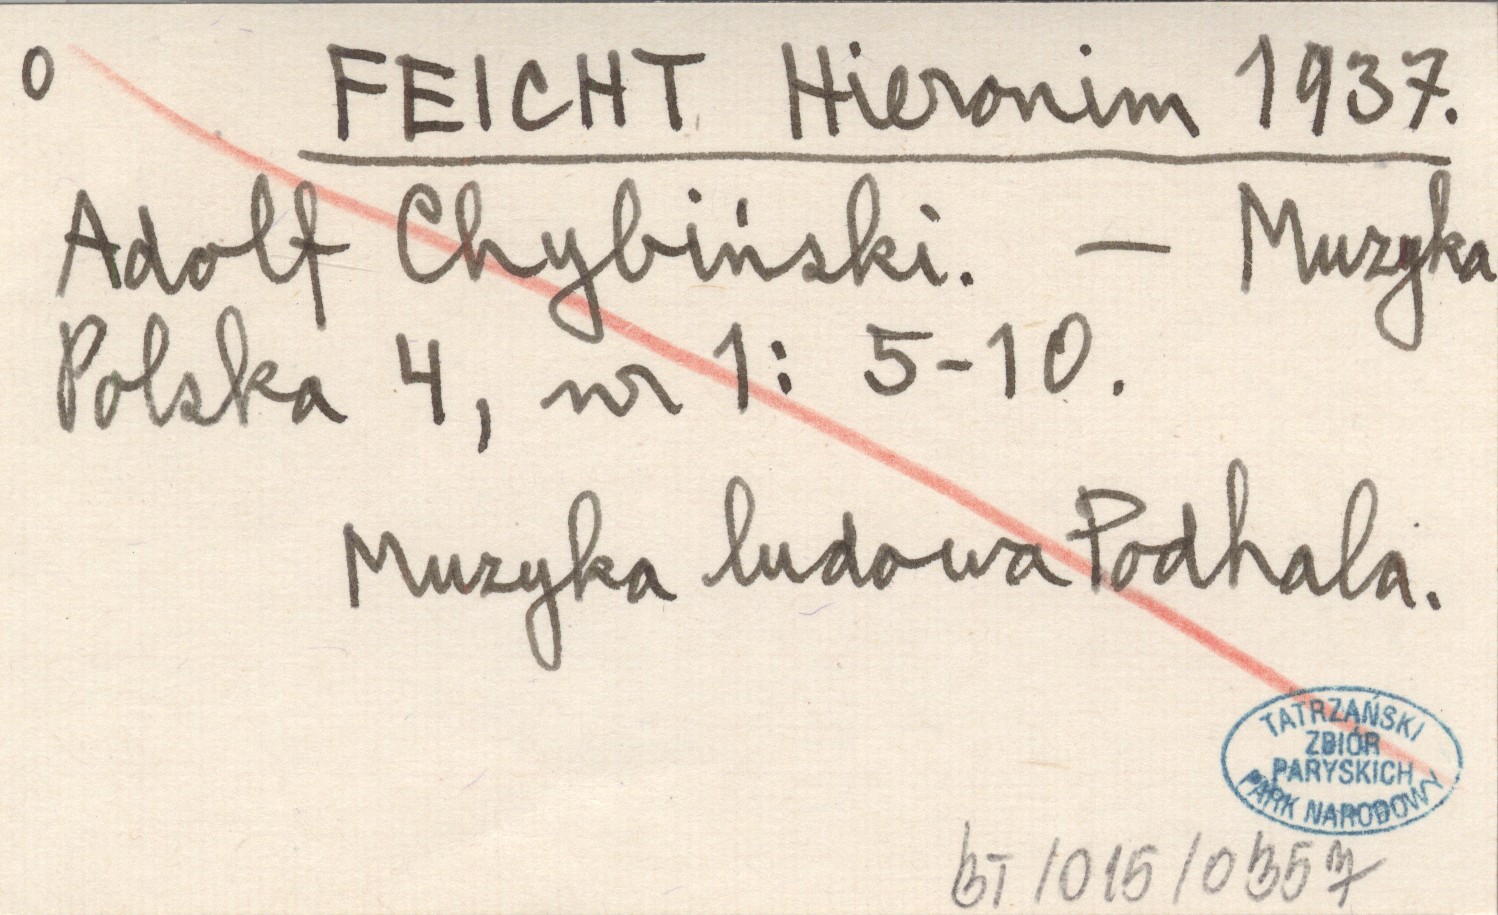 O FEICHT Hieronim 1937.
Adolf Chybiński. — Muzyka
Polska 4, nr 1: 5-10.
Muzyka ludowa Podhala.
TATRZAŃSKI
ZBIÓR
PARYSKICH
PARK NARODOWY
BT/015/0357